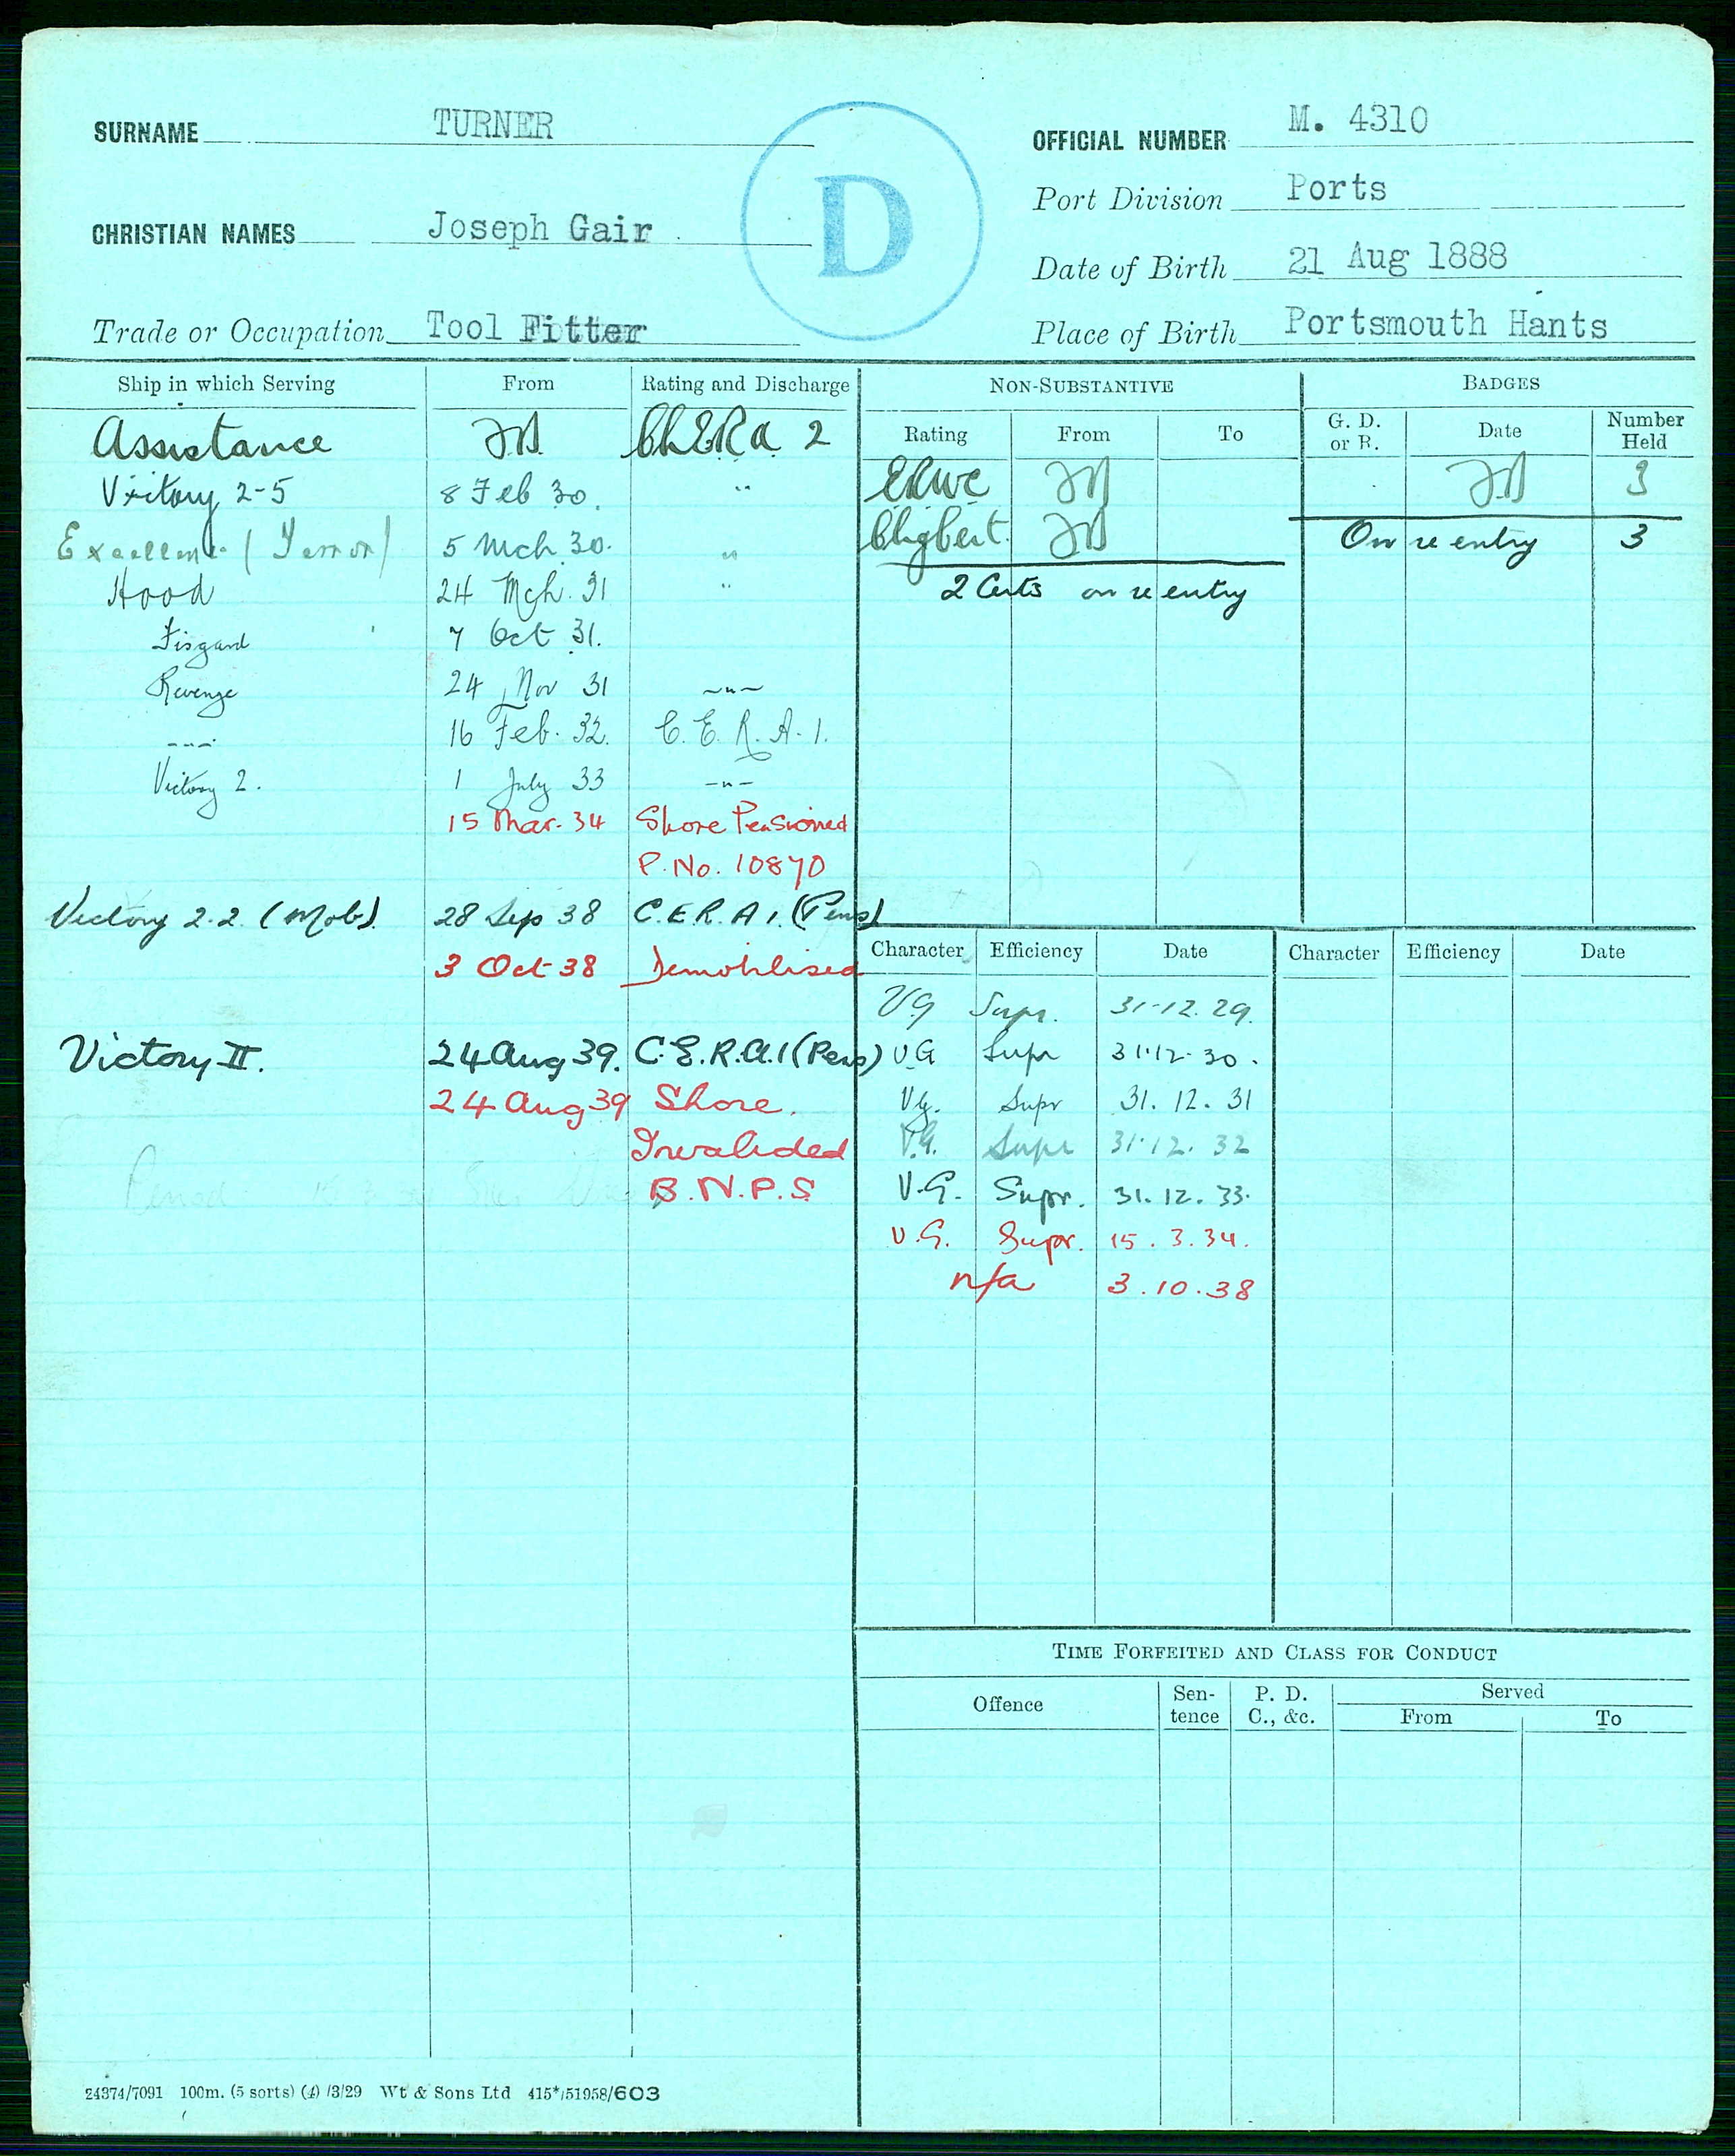 SURNAME TURNER
CHRISTIAN NAMES Joseph Gair
Trade or Occupation Tool Fitter
D
OFFICIAL NUMBER M. 4310
Port Division Ports
Date of Birth 21 Aug 1888
Place of Birth Portsmouth Hants
Ship in which Serving From Rating and Discharge
Assistance ChERA 2
Victory 2-5 8 Feb 30. "
Excellent (Terror) 5 Mch 30. "
Hood 24 Mch. 31 "
Fisgard 7 Oct 31.
Revenge 24 Nov 31 -"-
-"- 16 Feb. 32. C.E.R.A.1.
Victory 2. 1 July 33 -"-
15 Mar. 34 Shore Pensioned
P. No. 10870
Victory 2.2. (Mob). 28 Sep 38 C.E.R.A 1. (Pens)
3 Oct 38 Demobilised
Victory II. 24 Aug 39. C.E.R.A.1 (Pens)
24 Aug 39 Shore.
Invalided
B.N.P.S
NON-SUBSTANTIVE
Rating From To
ERWC
2 Certs on re entry
BADGES
G. D. or B. Date Number Held
3
On re entry 3
Character Efficiency Date Character Efficiency Date
VG Supr. 31-12.29.
V.G Supr 31.12.30.
VG. Supr 31.12.31
V.G. Supr 31.12.32
V.G. Supr. 31.12.33.
V.G. Supr. 15.3.34.
n/a 3.10.38
TIME FORFEITED AND CLASS FOR CONDUCT
Offence Sen-tence P. D. C., &c. Served
From To
24374/7091 100m. (5 sorts) (4) /3/29 Wt & Sons Ltd 415*/51958/603